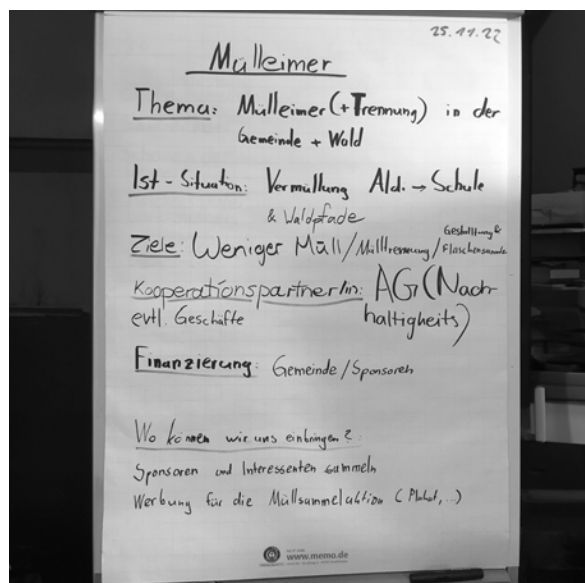 25.11.22
Mülleimer
Thema: Mülleimer (+Trennung) in der
Gemeinde + Wald
Ist-Situation: Vermüllung Ald. → Schule
& Waldpfade
Ziele: Weniger Müll/Mülltrennung/Gestaltung &
Kooperationspartner/in: AG (Nach-
evtl. Geschäfte haltigkeits)
Finanzierung: Gemeinde/Sponsoren
Wo können wir uns einbringen?:
Sponsoren und Interessenten sammeln
Werbung für die Müllsammelaktion (Plakat,...)
www.memo.de